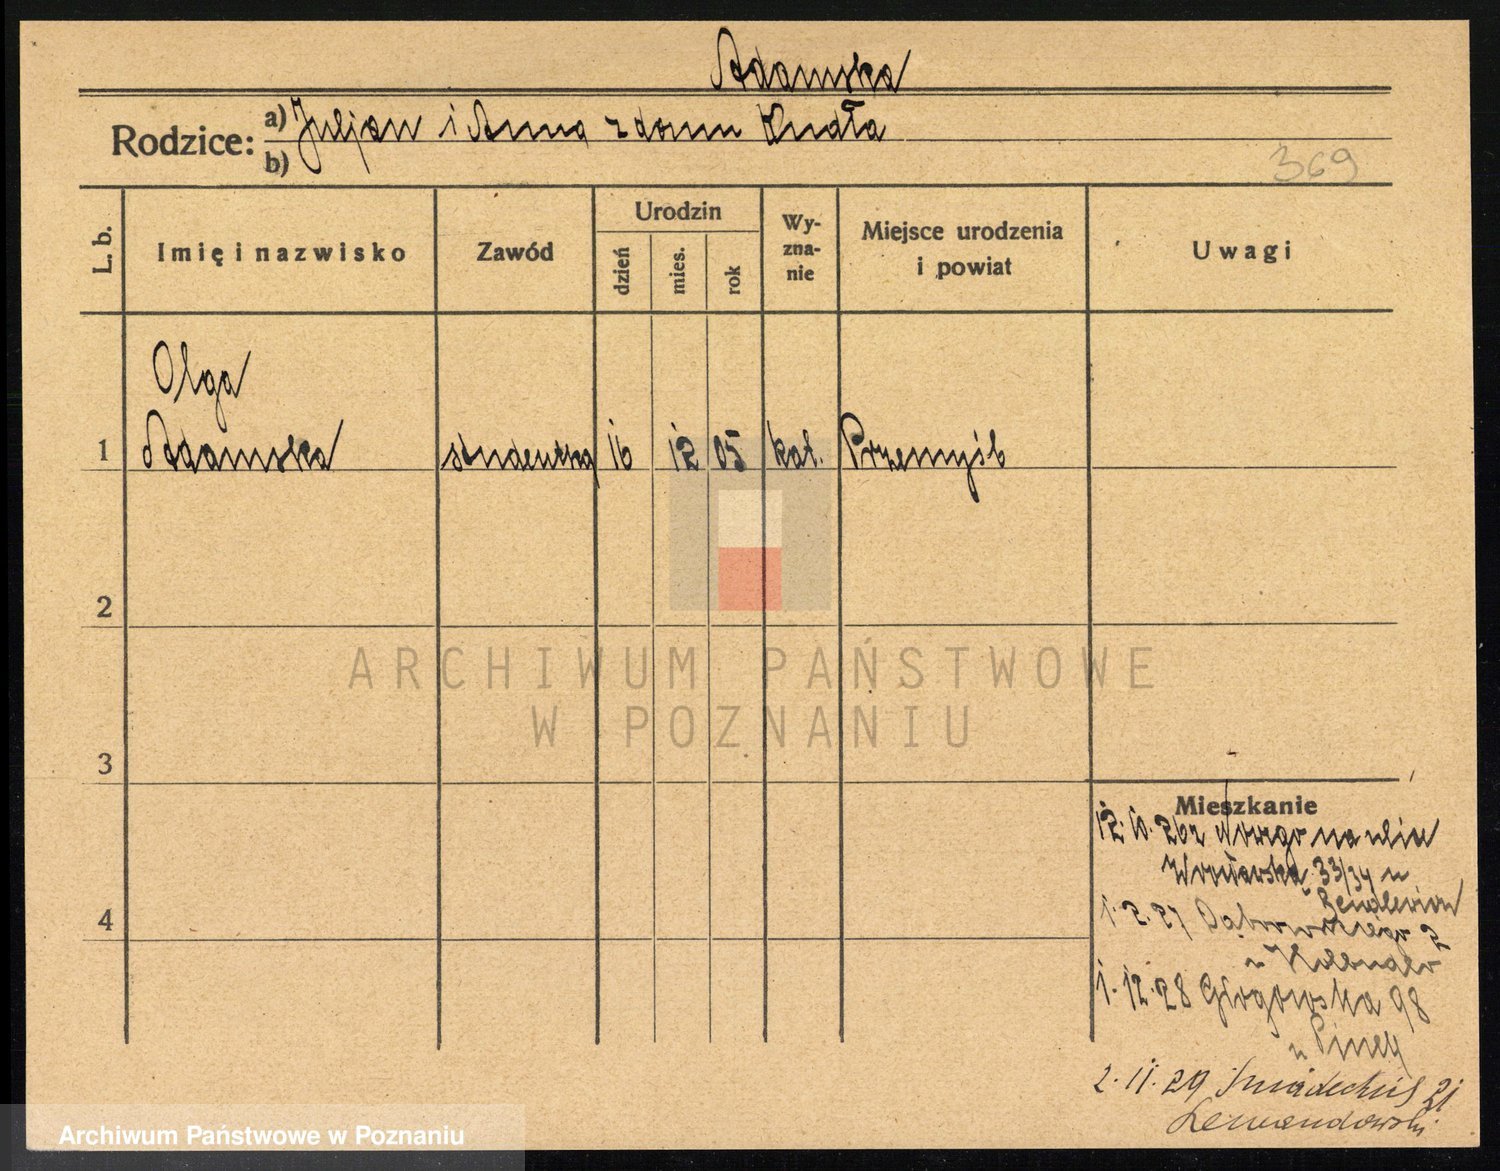 Adamska
Rodzice: a) Juljan i Anna z domu Kudła
b)
369
L. b.
Imię i nazwisko
Zawód
Urodzin
dzień
mies.
rok
Wy-
zna-
nie
Miejsce urodzenia
i powiat
Uwagi
Olga
1 Adamska studentka 16 12 05 kat. Przemyśl
2
3
4
Mieszkanie
12.10.26 z na ulicę
Wrocławska 33/34 u
1.2.27 Dąbrowskiego 2
u
1.12.28 Głogowska 98
u
2.11.29 Śniadeckich 21
Lewandowski
ARCHIWUM PAŃSTWOWE
W POZNANIU
Archiwum Państwowe w Poznaniu